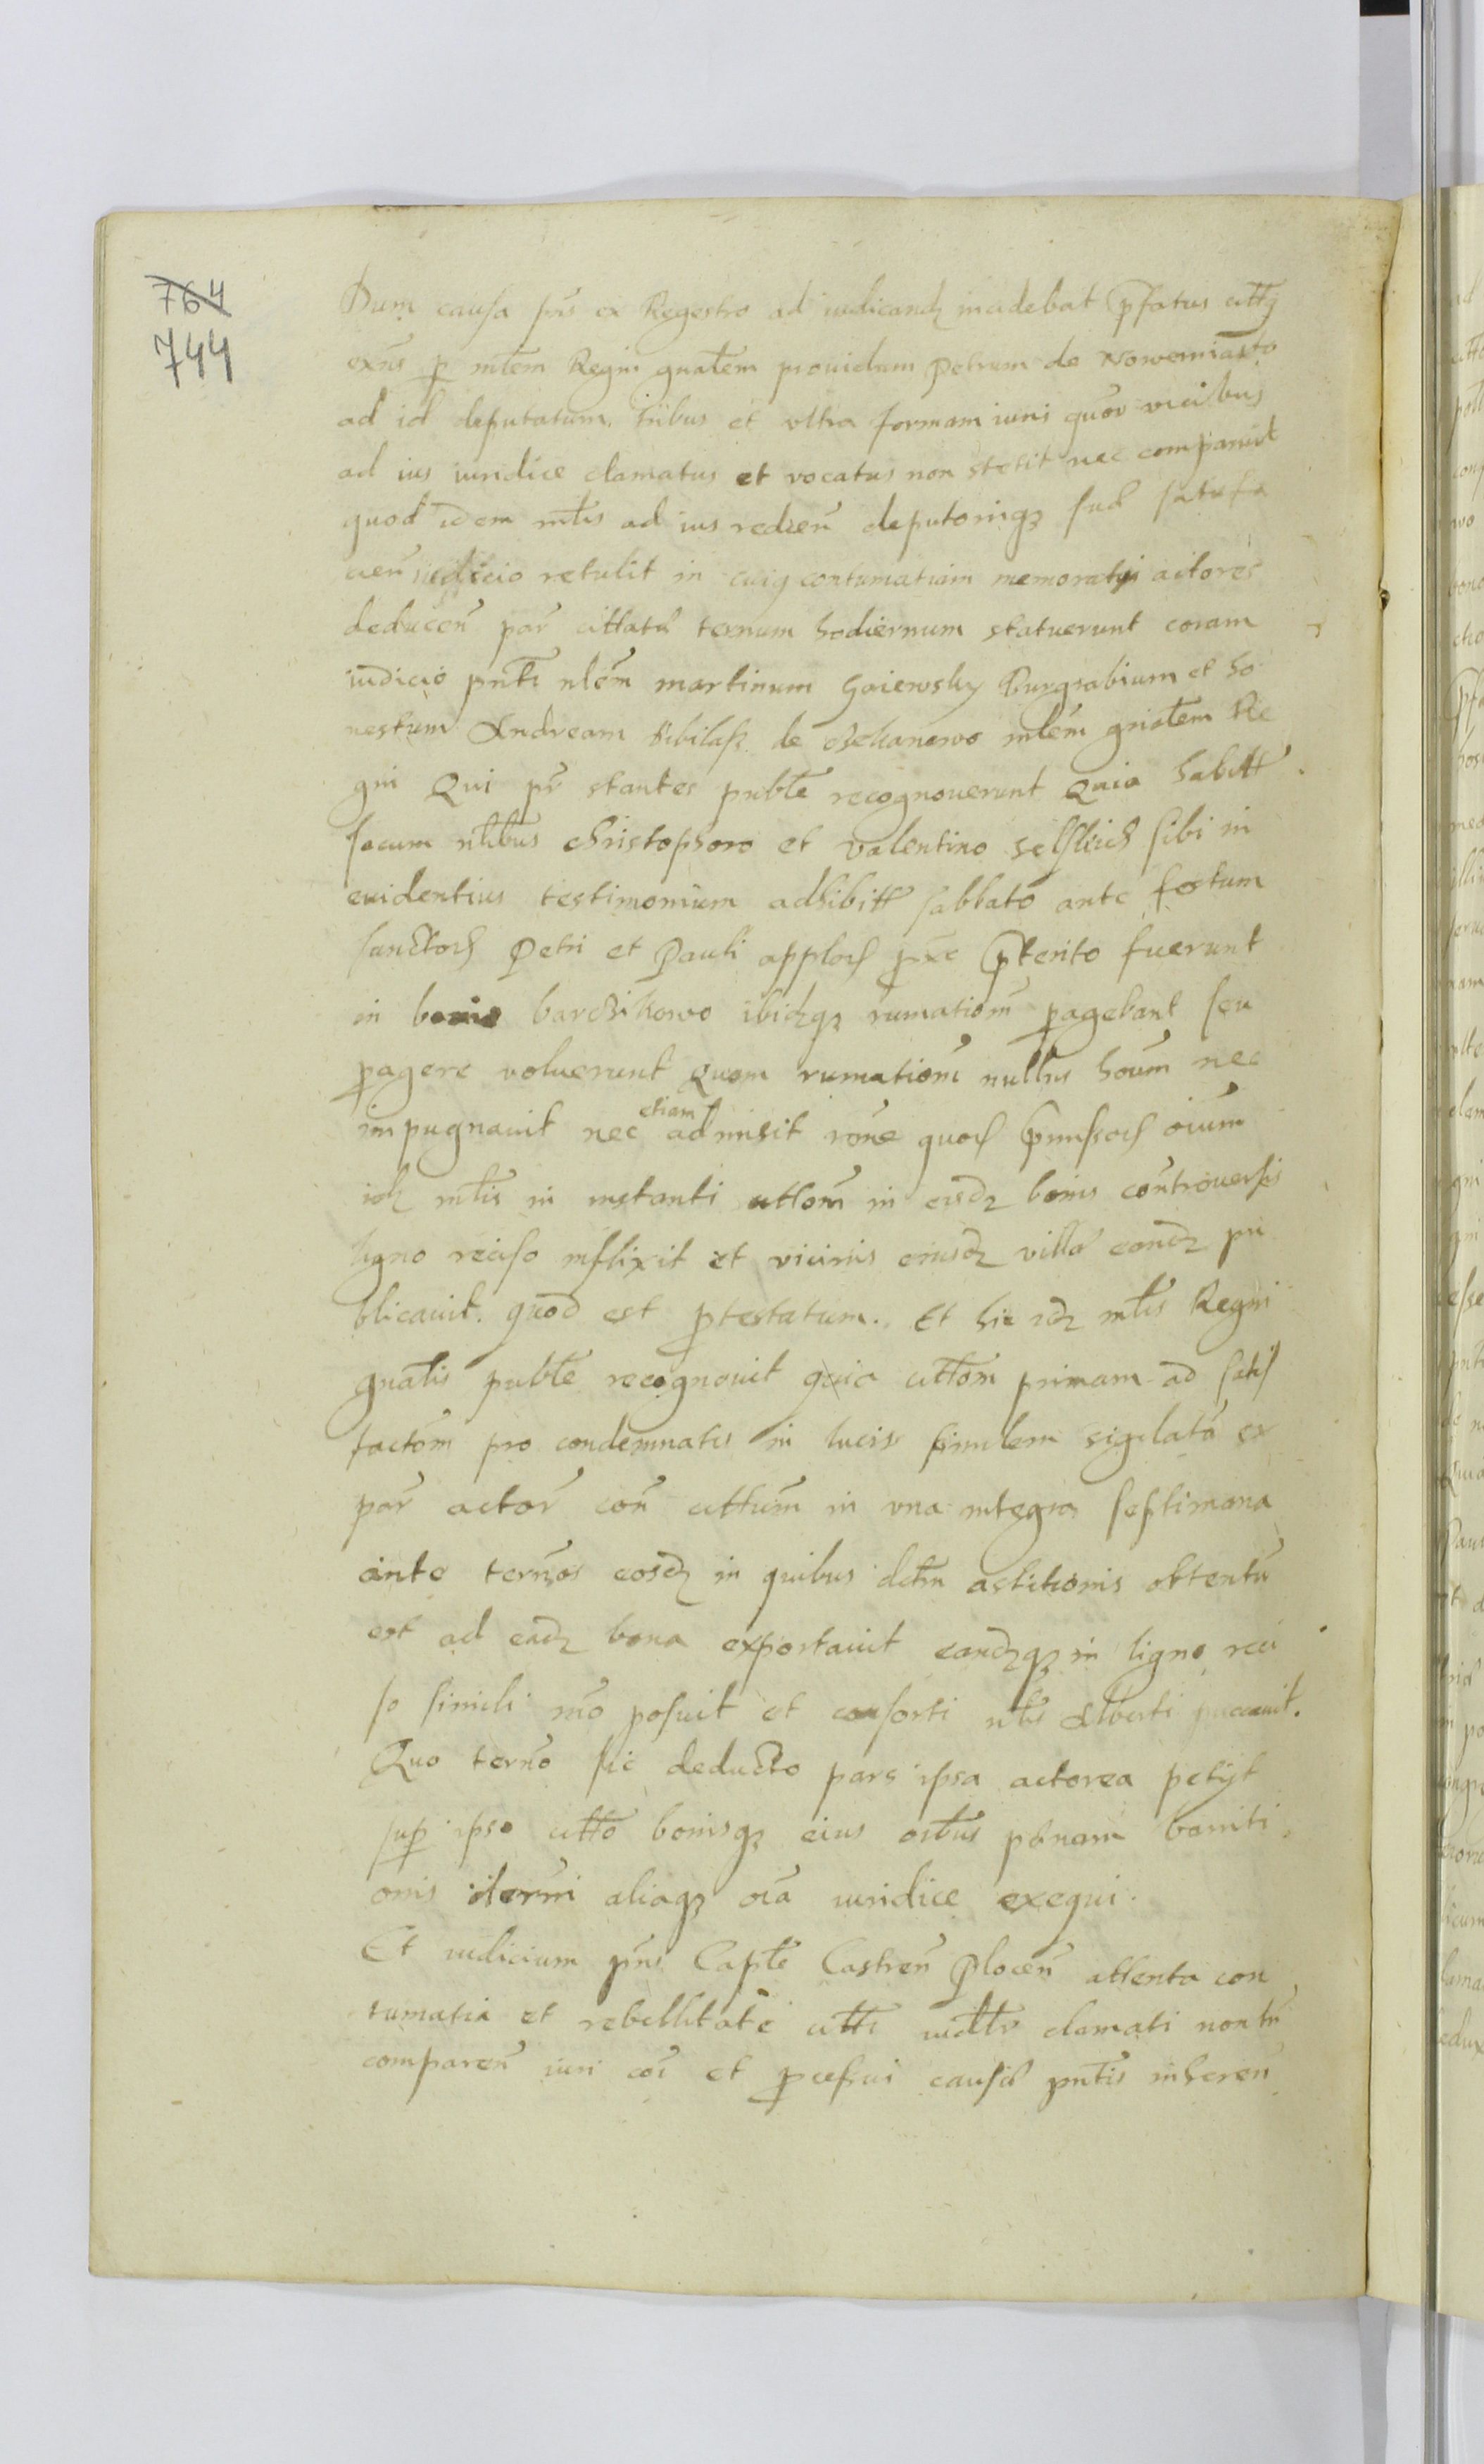 764
744
Dum causa pns ex Regestro ad iudicandz incidebat pfatus citty
exns p mlem Regni gnalem providum Petrum de Nowemiasto
ad id deputatum tribus et vltra formam iuris quor vicibus
ad ius iuridice clamatus et vocatus non stetit nec comparuit
quod idem mlis ad ius redien deputoniqz sua satisfa
cien iudicio retulit in cuiq contumatiam memorati actores
deducen par cittata ternum hodiernum statuerunt coram
iudicio pnti nlem martinum Gaiewsky Burgrabium et ho
nestum Andream de mlem gnalem Re
gni Qui pr stantes puble recognouerunt Quia habitt
secum nlibus christophoro et valentino sibi in
euidentius testimonium adhibitt sabbato ante festum
sanctor Petri et Pauli applor pxe pterito fuerunt
in bonis barczikowo ibidzqz rumationm pagebant seu
pagere voluerunt Quam rumationm nullus houm nec
impugnauit nec etiam admisit rone quor pmissor oium
idz mlis in instanti cittonm in eisdz bonis controuersis
ligno reciso inflixit et vicinis eiusdz villa eandz pu
blicauit. quod est ptestatum. Et hic idz mlis Regni
gnalis puble recognouit quia cittom primam ad satis
factom pro condemnatis in lucis similem sigilata ex
par actor con cittum in vna integra septimana
ante ternos eosdz in quibus dictm astitionis obtentu
est ad eadz bona exportauit eandzqz in ligno reci
so simili mo posuit et consorti nlis Alberti
Quo terno sic deducto pars ipsa actorea petijt
sup ipso citto bonisqz eius oibus penam banniti
onis aliaqz oia iuridice exequi.
Et iudicium pns Caple Castren Plocen attenta con
tumatia et rebellitate citti clamati non tn
comparen iuri coi et pcessui causa pntis inheren